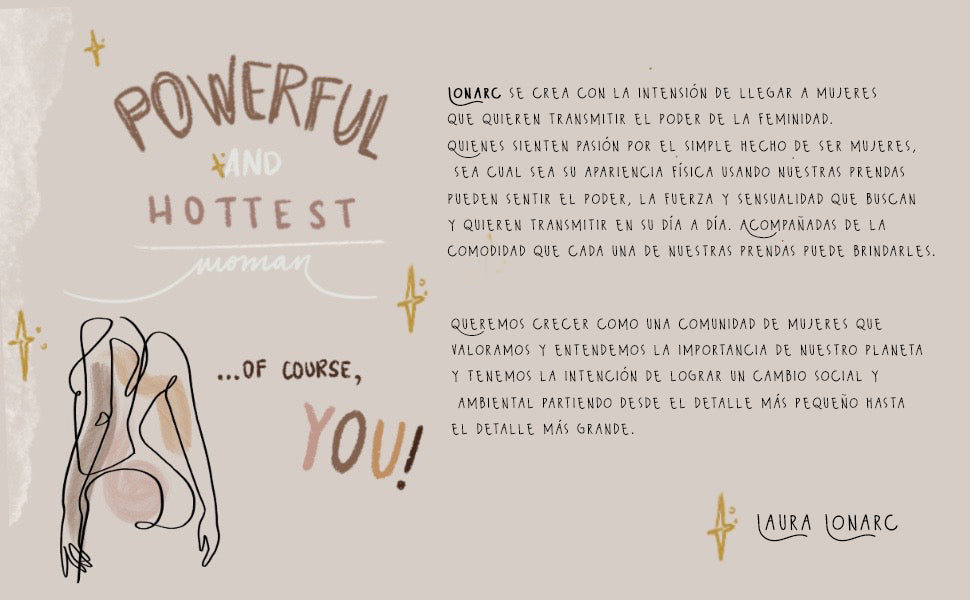 POWERFUL
AND
HOTTEST
woman
...OF COURSE,
YOU!
LONARC SE CREA CON LA INTENSIÓN DE LLEGAR A MUJERES
QUE QUIEREN TRANSMITIR EL PODER DE LA FEMINIDAD.
QUIENES SIENTEN PASIÓN POR EL SIMPLE HECHO DE SER MUJERES,
SEA CUAL SEA SU APARIENCIA FÍSICA USANDO NUESTRAS PRENDAS
PUEDEN SENTIR EL PODER, LA FUERZA Y SENSUALIDAD QUE BUSCAN
Y QUIEREN TRANSMITIR EN SU DÍA A DÍA. ACOMPAÑADAS DE LA
COMODIDAD QUE CADA UNA DE NUESTRAS PRENDAS PUEDE BRINDARLES.
QUEREMOS CRECER COMO UNA COMUNIDAD DE MUJERES QUE
VALORAMOS Y ENTENDEMOS LA IMPORTANCIA DE NUESTRO PLANETA
Y TENEMOS LA INTENCIÓN DE LOGRAR UN CAMBIO SOCIAL Y
AMBIENTAL PARTIENDO DESDE EL DETALLE MÁS PEQUEÑO HASTA
EL DETALLE MÁS GRANDE.
LAURA LONARC